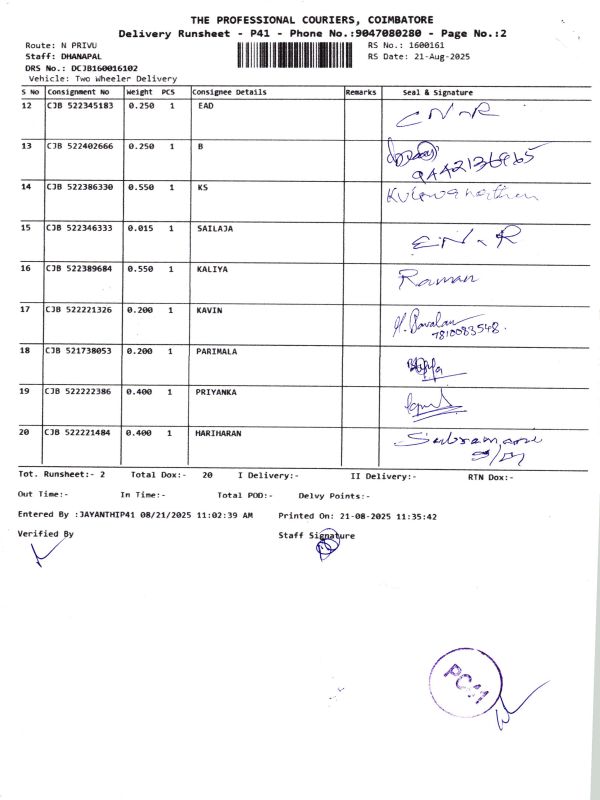 THE PROFESSIONAL COURIERS, COIMBATORE
Delivery Runsheet - P41 - Phone No.:9047080280 - Page No.:2
Route: N PRIVU RS No.: 1600161
Staff: DHANAPAL RS Date: 21-Aug-2025
DRS No.: DCJB160016102
Vehicle: Two Wheeler Delivery
S No Consignment No Weight PCS Consignee Details Remarks Seal & Signature
12 CJB 522345183 0.250 1 EAD
13 CJB 522402666 0.250 1 B
14 CJB 522386330 0.550 1 KS
15 CJB 522346333 0.015 1 SAILAJA
16 CJB 522389684 0.550 1 KALIYA Raman
17 CJB 522221326 0.200 1 KAVIN
7810083548.
18 CJB 521738053 0.200 1 PARIMALA
19 CJB 522222386 0.400 1 PRIYANKA
20 CJB 522221484 0.400 1 HARIHARAN
Tot. Runsheet:- 2 Total Dox:- 20 I Delivery:- II Delivery:- RTN Dox:-
Out Time:- In Time:- Total POD:- Delvy Points:-
Entered By :JAYANTHIP41 08/21/2025 11:02:39 AM Printed On: 21-08-2025 11:35:42
Verified By Staff Signature
PC41